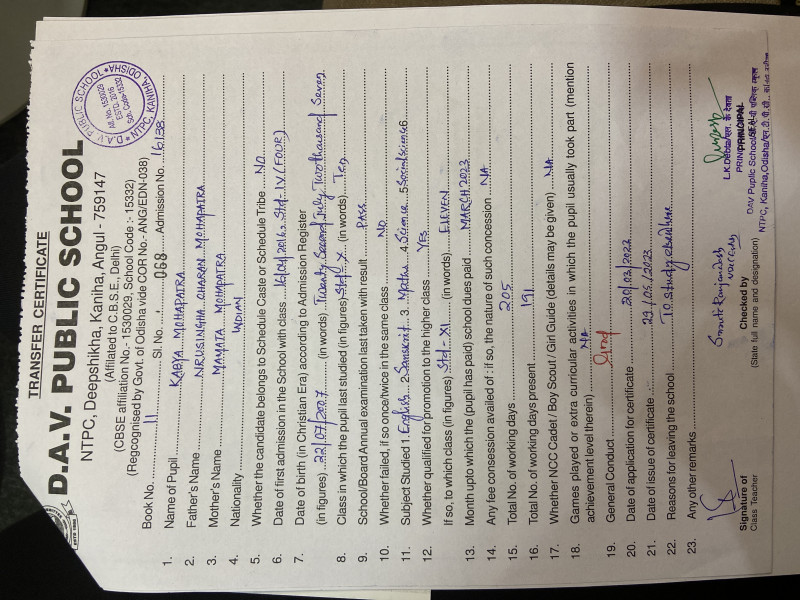 TRANSFER CERTIFICATE
D.A.V. PUBLIC SCHOOL
NTPC, Deepshikha, Kaniha, Angul - 759147
(Affiliated to C.B.S.E., Delhi)
(CBSE affiliation No.- 1530029, School Code :- 15332)
(Regcognised by Govt. of Odisha vide COR No.- ANG/EDN-038)
D.A.V PUBLIC SCHOOL
Aff. No. 1530029
ESTD. 2016
Sch. Code-15332
NTPC, KANIHA, ODISHA
Book No. 11 Sl. No. 068 Admission No. 16138
1. Name of Pupil KABYA MOHAPATRA
2. Father's Name NRUSINGHA CHARAN MOHAPATRA
3. Mother's Name MAMATA MOHAPATRA
4. Nationality INDIAN
5. Whether the candidate belongs to Schedule Caste or Schedule Tribe NO
6. Date of first admission in the School with class 16/04/2016, Std-IV (FOUR)
7. Date of birth (in Christian Era) according to Admission Register
(in figures) 22/07/2007 (in words) Twenty Second July Two thousand Seven
8. Class in which the pupil last studied (in figures) Std-X (in words) Ten
9. School/Board Annual examination last taken with result PASS
10. Whether failed, if so once/twice in the same class NO
11. Subject Studied 1. English 2. Sanskrit 3. Maths 4. Science 5. Social science 6.
12. Whether qualified for promotion to the higher class YES
If so, to which class (in figures) Std-XI (in words) ELEVEN
13. Month upto which the (pupil has paid) school dues paid MARCH 2023
14. Any fee consession availed of : if so, the nature of such concession NA
15. Total No. of working days 205
16. Total No. of working days present 191
17. Whether NCC Cadet / Boy Scout / Girl Guide (details may be given) NA
18. Games played or extra curricular activities in which the pupil usually took part (mention
achievement level therein) NA
19. General Conduct Good
20. Date of application for certificate
21. Date of issue of certificate 29/05/2023
22. Reasons for leaving the school. TO study elsewhere
23. Any other remarks
Signature of
Class Teacher
Checked by
(State full name and designation)
PRINCIPAL
SEAL
DAV Puplic School
NTPC, Kaniha, Odisha